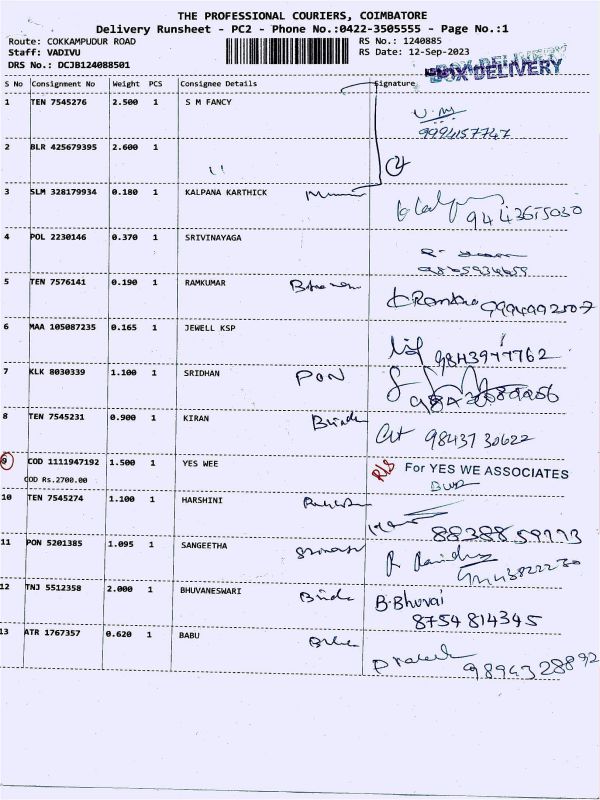 THE PROFESSIONAL COURIERS, COIMBATORE
Delivery Runsheet - PC2 - Phone No.:0422-3505555 - Page No.:1
Route: COKKAMPUDUR ROAD RS No.: 1240885
Staff: VADIVU RS Date: 12-Sep-2023
DRS No.: DCJB124088501 BOX DELIVERY
S No Consignment No Weight PCS Consignee Details Signature
1 TEN 7545276 2.500 1 S M FANCY
9994157747
2 BLR 425679395 2.600 1
3 SLM 328179934 0.180 1 KALPANA KARTHICK
4 POL 2230146 0.370 1 SRIVINAYAGA
5 TEN 7576141 0.190 1 RAMKUMAR
6 MAA 105087235 0.165 1 JEWELL KSP
7 KLK 8030339 1.100 1 SRIDHAN PON
8 TEN 7545231 0.900 1 KIRAN
9843730622
9 COD 1111947192 1.500 1 YES WEE For YES WE ASSOCIATES
COD Rs.2700.00
10 TEN 7545274 1.100 1 HARSHINI
11 PON 5201385 1.095 1 SANGEETHA
12 TNJ 5512358 2.000 1 BHUVANESWARI B.Bhuvai
8754814345
13 ATR 1767357 0.620 1 BABU
9894328892